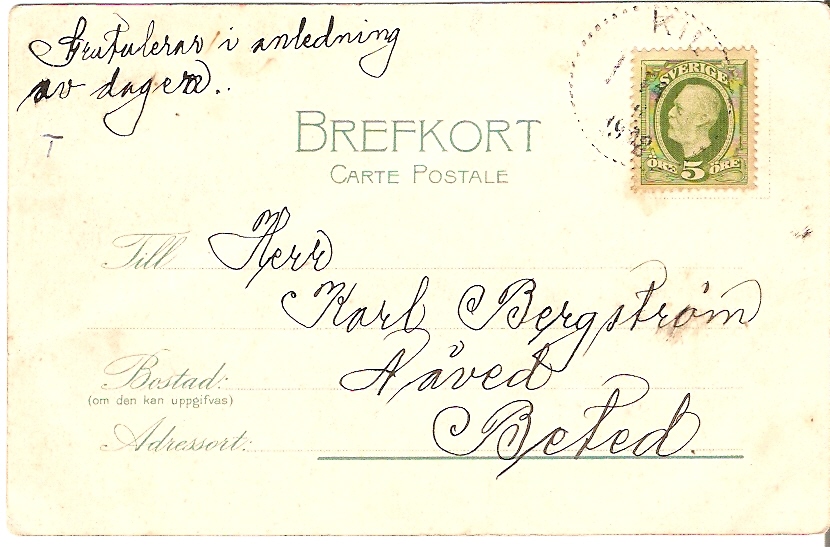 Gratulerar i anledning
av dagen..
T
KIL
1903
SVERIGE
ÖRE 5 ÖRE
BREFKORT
CARTE POSTALE
Till Herr
Karl Bergström
Nåved
Bostad:
(om den kan uppgifvas)
Adressort: Beted.